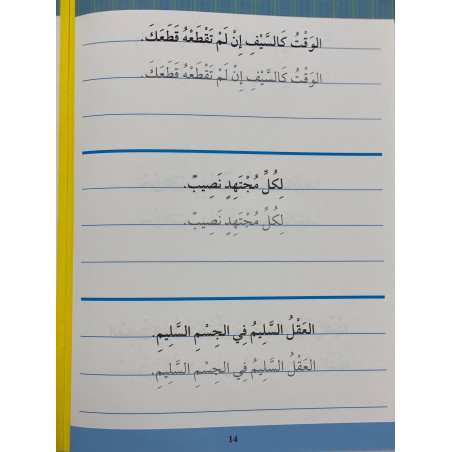 الوَقْتُ كَالسَّيْفِ إِنْ لَمْ تَقْطَعْهُ قَطَعَكَ.
الوَقْتُ كَالسَّيْفِ إِنْ لَمْ تَقْطَعْهُ قَطَعَكَ.
لِكُلِّ مُجْتَهِدٍ نَصِيبٌ.
لِكُلِّ مُجْتَهِدٍ نَصِيبٌ.
العَقْلُ السَّلِيمُ فِي الجِسْمِ السَّلِيمِ.
العَقْلُ السَّلِيمُ فِي الجِسْمِ السَّلِيمِ.
14